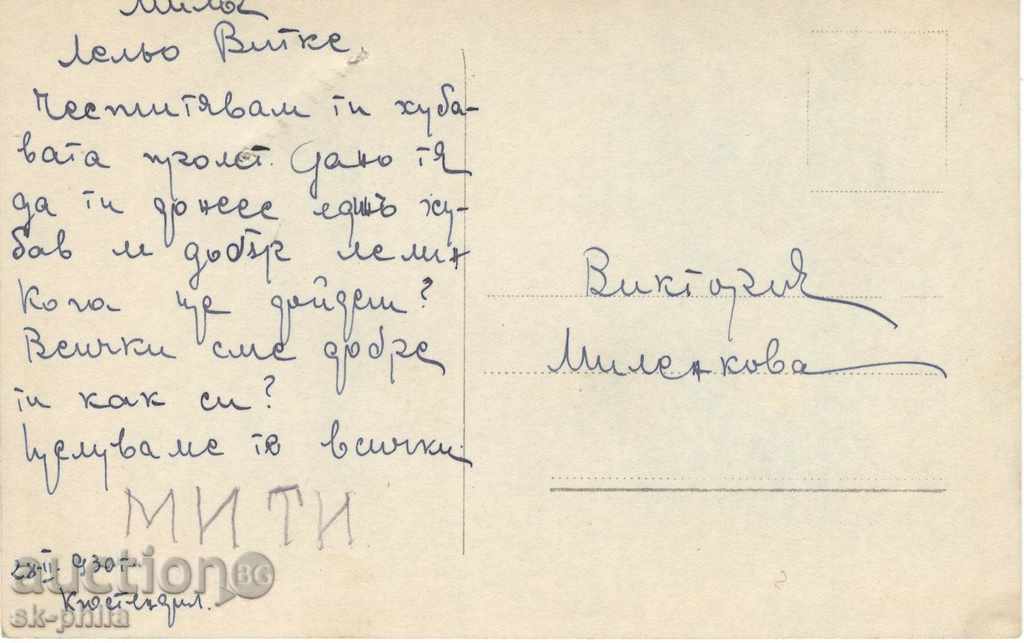 Мила
Лельо Витке,
Честитявам ти хуба-
вата пролет. Дано тя
да ти донесе единъ ху-
бав и добър лелин
Кога ще дойдеш?
Всички сме добре
ти как си?
Целуваме те всички
МИТИ
28-II-930 г.
Кюстендил.
Виктория
Миленкова
auction BG
sk-phila